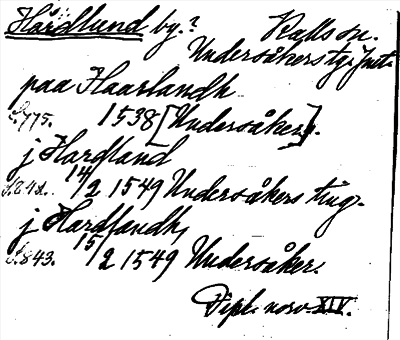 Hårdlund by.? Kalls sn.
Undersåkers tg. Jmt.
paa Haarlandh
S. 775. 1538 [Undersåker].
j Hardland
S. 842. 14/2 1549 Undersåkers ting.
j Hardlandh,
S. 843. 15/2 1549 Undersåker.
Dipl. norv. XIV.